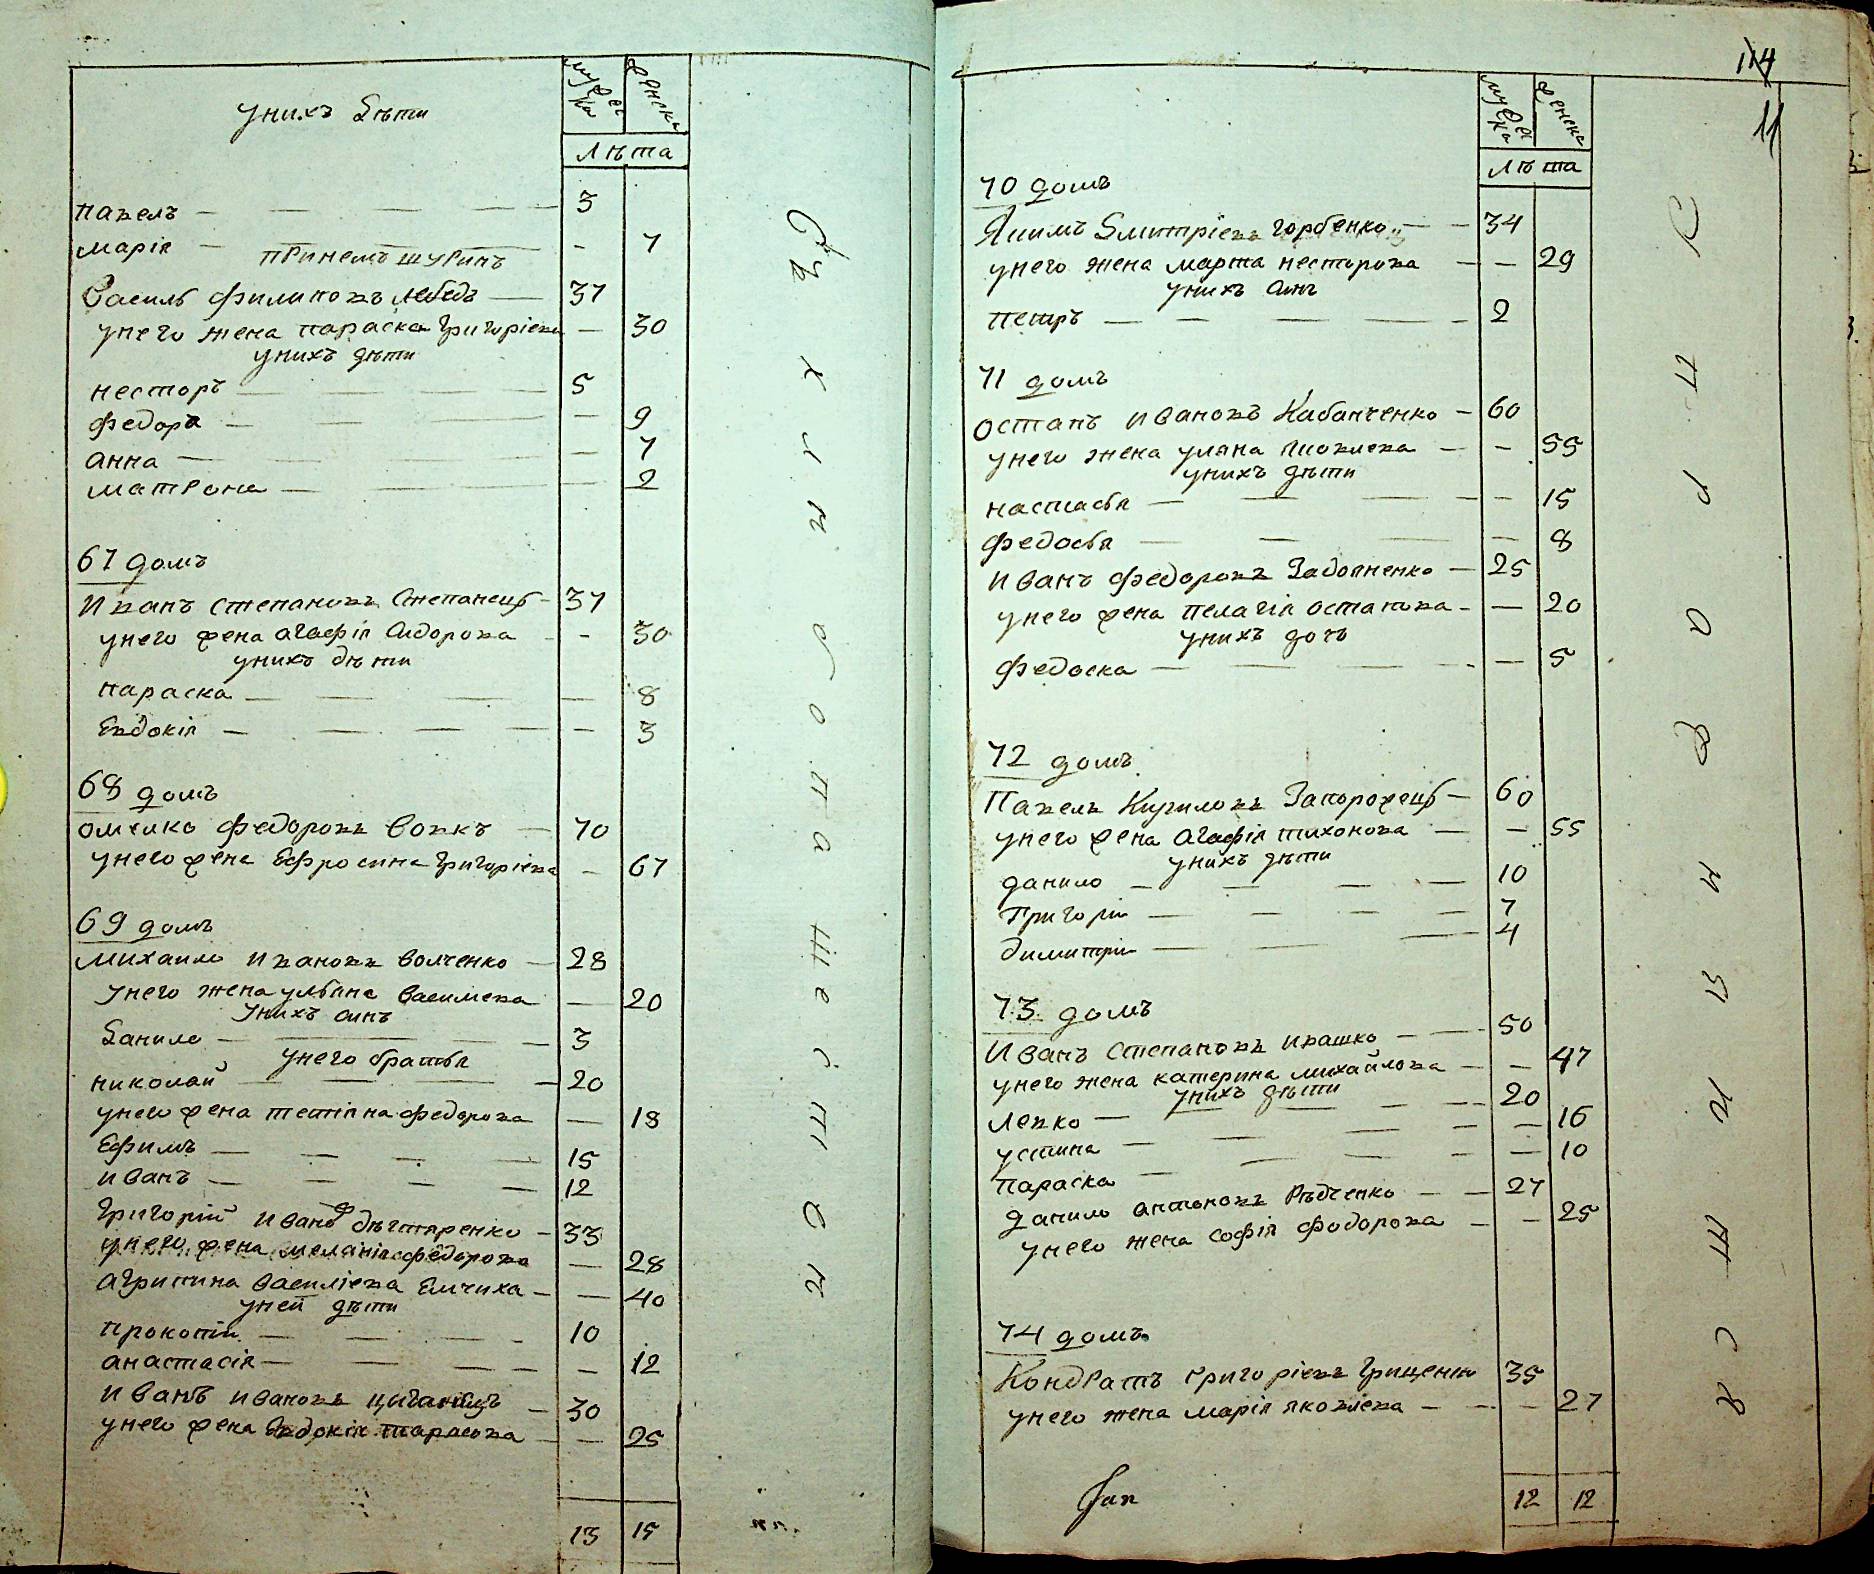 мужеска
женска
Лѣта
унихъ дѣти
павелъ — 3
марія — 7
принемъ шуринъ
Василь филиповъ лебедь — 37
унего жена параска григоріева — 30
унихъ дѣти
несторъ — 5
федора — 9
анна — 7
матрона — 2
67 домъ
Иванъ степановъ Степанецъ — 37
унего жена агафія сидорова — 30
унихъ дѣти
параска — 8
Евдокія — 3
68 домъ
омелко федоровъ вовкъ — 70
унего жена Ефросина григоріева — 67
69 домъ
михаило ивановъ волченко — 28
унего жена уліяна василиева — 20
унихъ синъ
данило — 3
унего братья
николай — 20
унего жена тетіяна федорова — 18
Ефимъ — 15
иванъ — 12
григорій иванов дѣгтяренко — 33
унего жена меланія федорова — 28
агрипина василіева Емчиха — 40
уней дѣти
прокопій — 10
анастасія — 12
иванъ ивановъ — 30
унего жена Евдокія тарасова — 25
13 15
114
11
мужеска
женска
Лѣта
70 домъ
Якимъ дмитріевъ горбенко — 34
унего жена марта нестерова — 29
унихъ синъ
петръ — 2
71 домъ
остапъ ивановъ Кабанченко — 60
унего жена уляна яковлева — 55
унихъ дѣти
настасья — 15
федосья — 8
иванъ федоровъ — 25
унего жена пелагія остапова — 20
унихъ дочь
федоска — 5
72 домъ
Павелъ Кириловъ Запорожецъ — 60
унего жена агафія тихонова — 55
унихъ дѣти
данило — 10
григорій — 7
димитрій — 4
73 домъ
Иванъ степановъ ивашко — 50
унего жена катерина михайлова — 47
унихъ дѣти
левко — 20
устина — 16
параска — 10
данило антоновъ Рѣдченко — 27
унего жена софія федорова — 25
74 домъ
Кондратъ григоріевъ Грищенко — 35
унего жена марія яковлева — 27
12 12